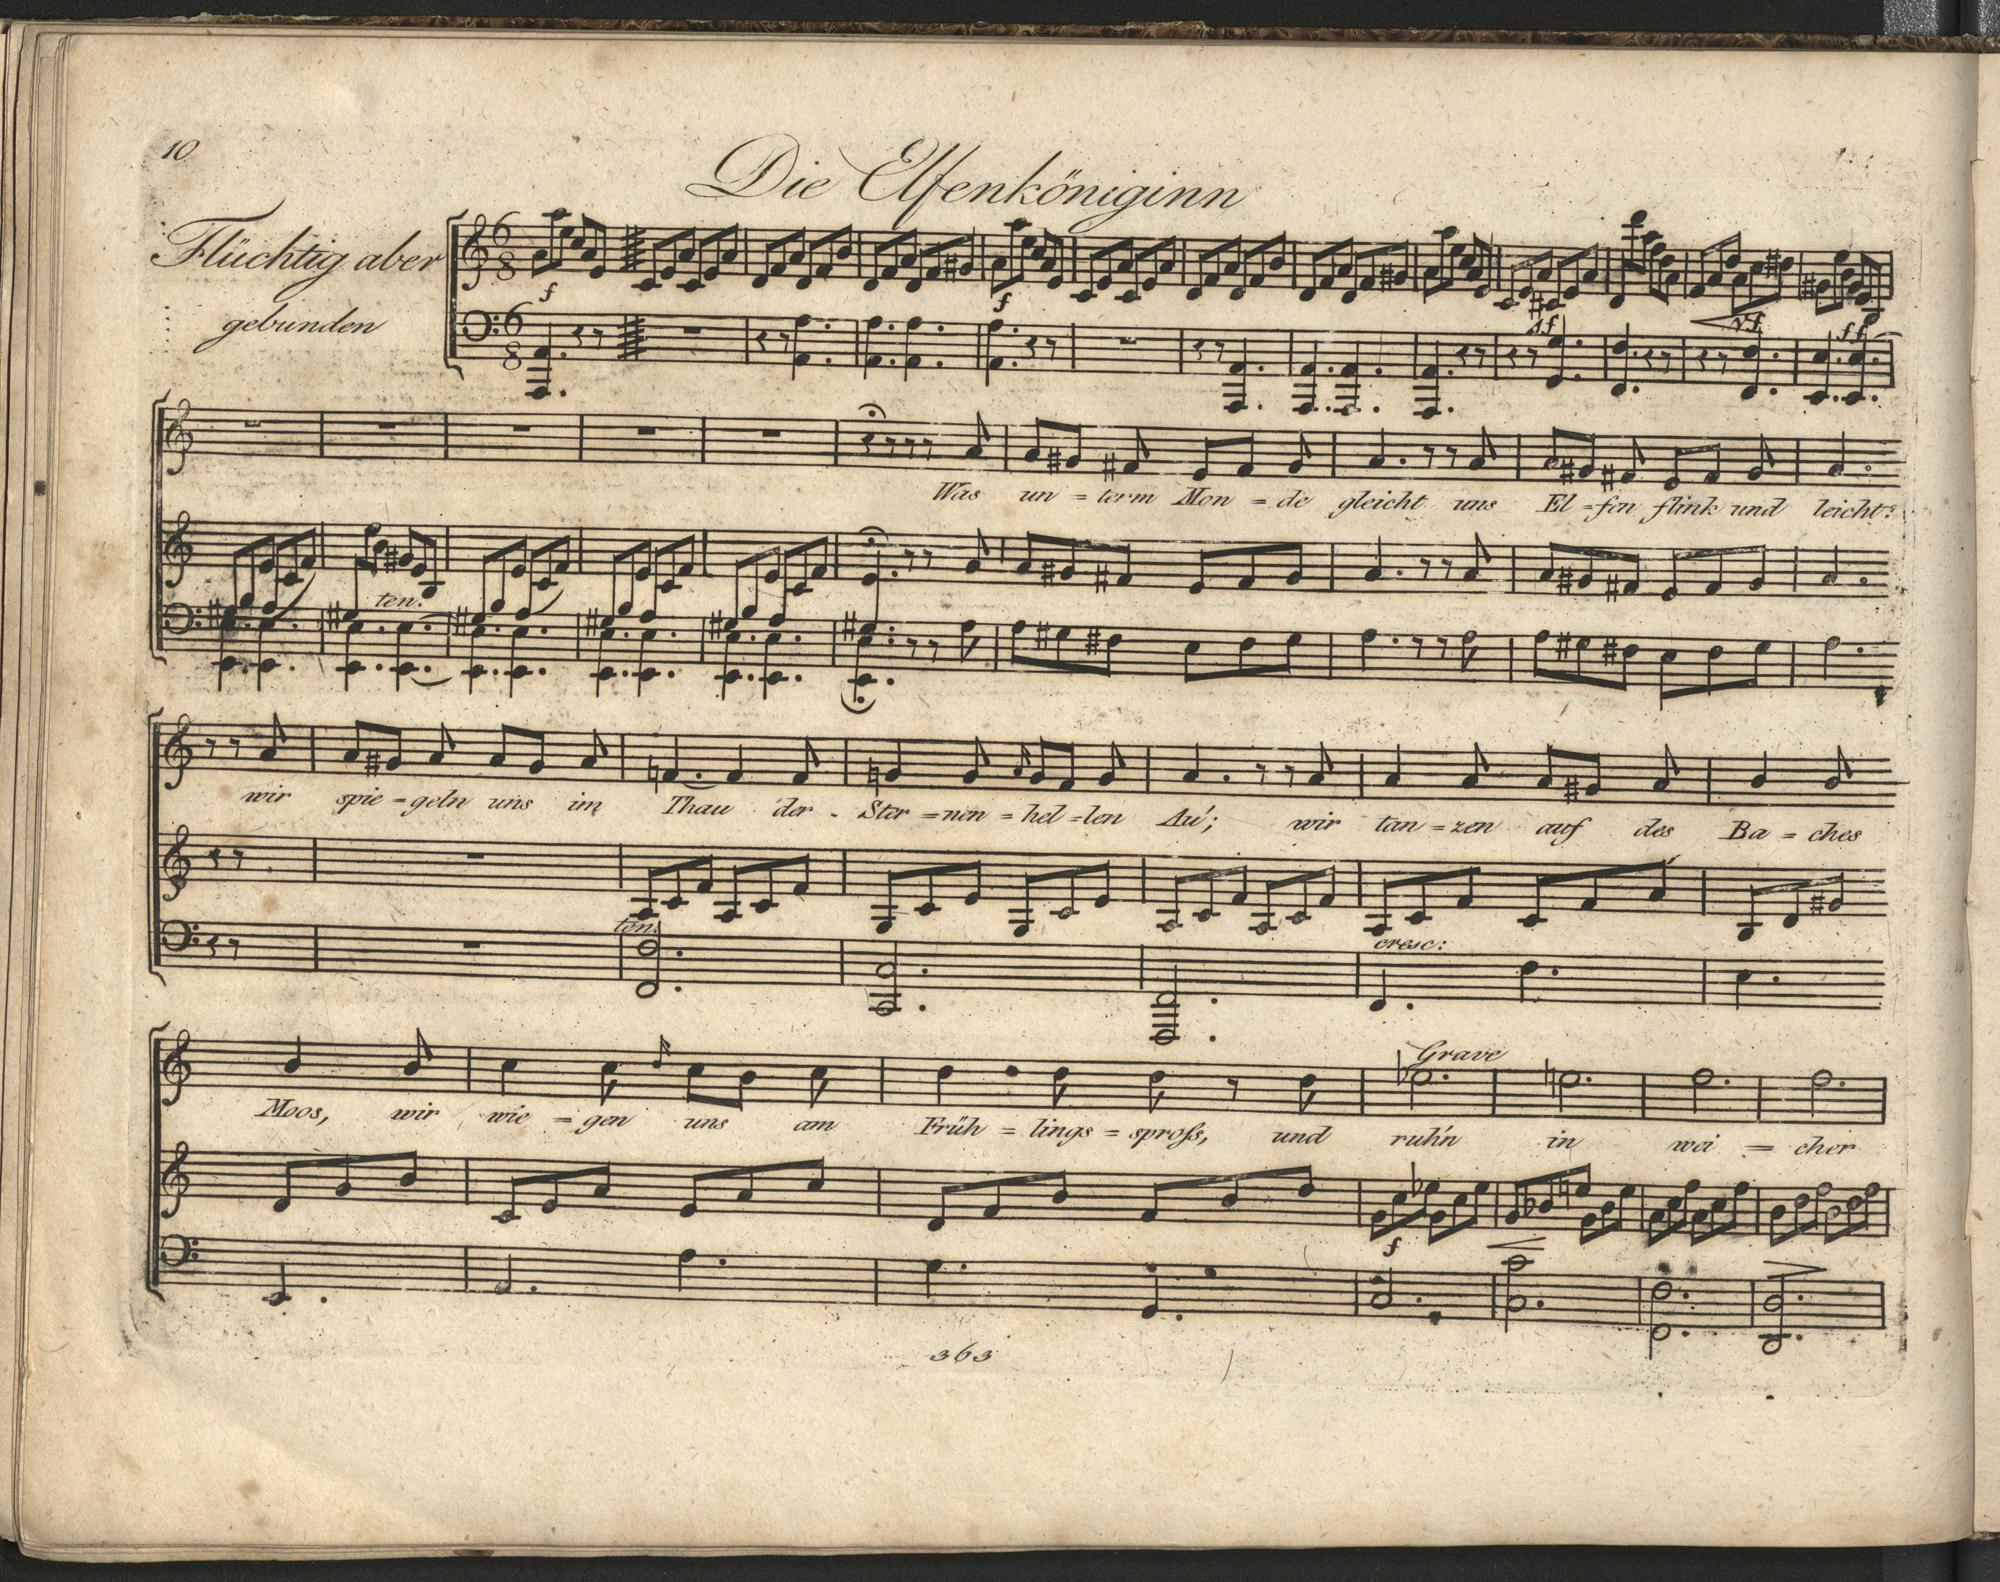 10
Die Elfenköniginn
Flüchtig aber
gebunden
6 8
f f sf sf ff
6 8
Was un = term Mon = de gleicht uns El = fen flink und leicht?
ten.
wir spie = geln uns im Thau der Ster = nen = hel = len Au'; wir tan = zen auf des Ba = ches
ten.
cresc:
Grave
Moos, wir wie = gen uns am Früh = lings = sproſs, und ruh'n in wei = cher
f
363